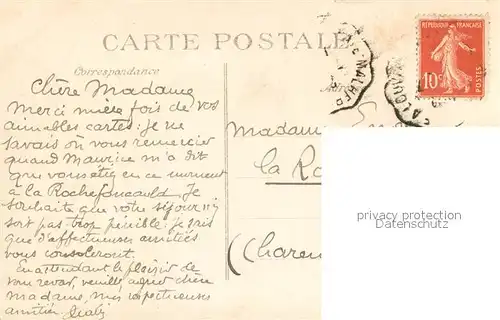 CARTE POSTALE
RÉPUBLIQUE FRANÇAISE
10c
POSTES
Correspondance
Chère Madame
Merci mille fois de vos
aimables cartes : je ne
savais où vous remercier
quand Maurice m'a dit
que vous étiez en ce moment
à la Rochefoucauld. Je
souhaite que votre séjour n'y
soit pas trop pénible : je sais
que d'affectueuses amitiés
vous consoleront.
En attendant le plaisir de
vous revoir, veuillez agréer chère
madame, mes respectueuses
amitiés
Madame
la Ro
(Charen
privacy protection
Datenschutz